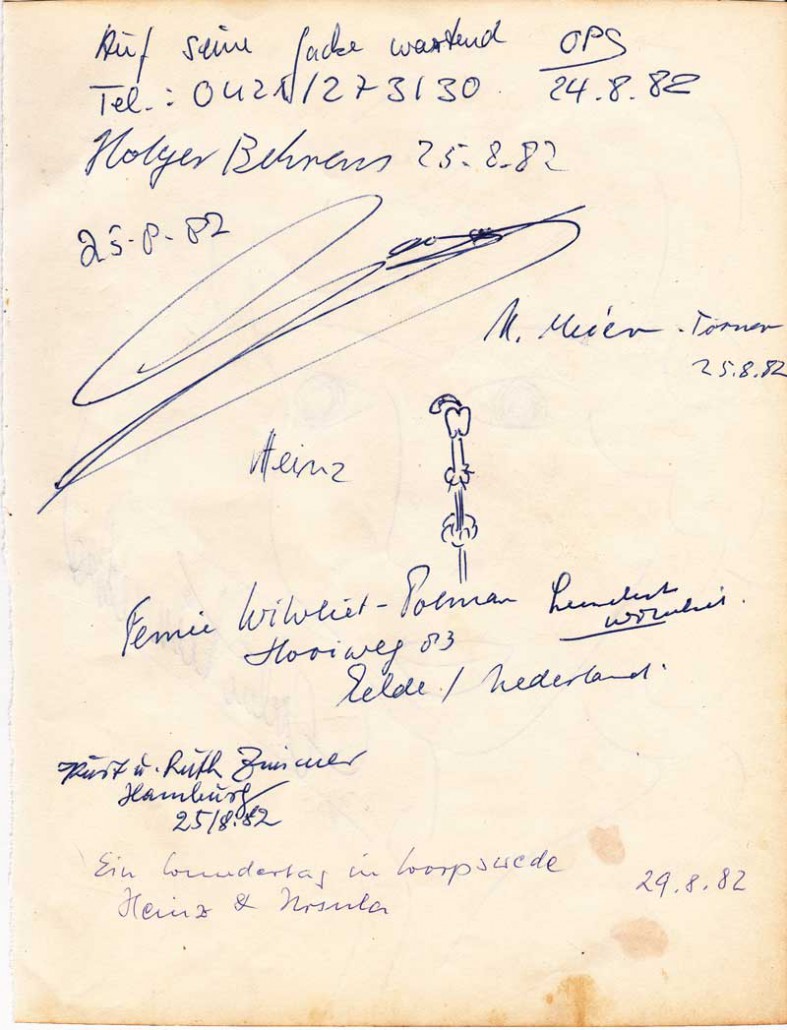 Auf seine Jacke wartend OPS
Tel.: 0421/273130 24.8.82
Holger Behrens 25.8.82
25.8.82
M. Meier-
25.8.82
Heinz
Femie Witvliet-Polman
Hooiweg 83
Eelde / Nederland.
Kurt u. Ruth Zimmer
Hamburg
25/8.82
Ein Wundertag in Worpswede
29.8.82
Heinz & Ursula